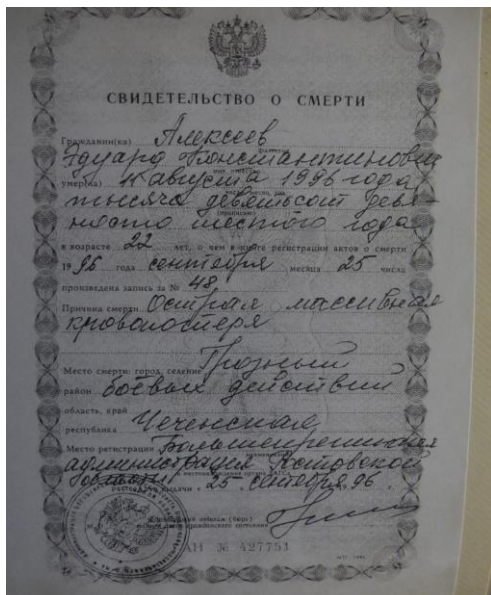 СВИДЕТЕЛЬСТВО О СМЕРТИ
Гражданин(ка) Алексеев
фамилия
Эдуард Константинович
умер(ла) августа 1996 года
тысяча девятьсот девя-
(прописью)
носто шестого года
в возрасте 22 лет, о чем в книге регистрации актов о смерти
1996 года сентября месяца 25 числа
произведена запись за № 48
Причина смерти Острая массивная
кровопотеря
Место смерти: город, селение Грозный
район боевых действий
область, край
республика Чеченская
Место регистрации
администрация Ростовской
области
25 сентября 96
АН № 427751